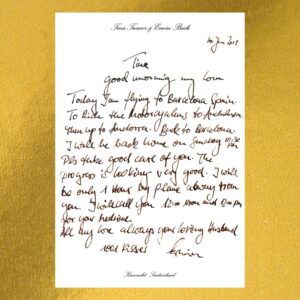 Tina Turner & Erwin Bach
10 Jun 2018
Tina
good morning my love
Today I am flying to Barcelona Spain.
To Ride the Motorcycles to
then up to Andorra. Back to Barcelona.
I will be back home on Sunday 10:30 pm
Pls take good care of you. The
progress is looking very good. I will
be only 1 Hour by plane away from
you. I will call you 12:00 Noon and 17:00 pm
for your Medicine.
All my love always your loving Husband
1001 Kisses Erwin
Küsnacht Switzerland